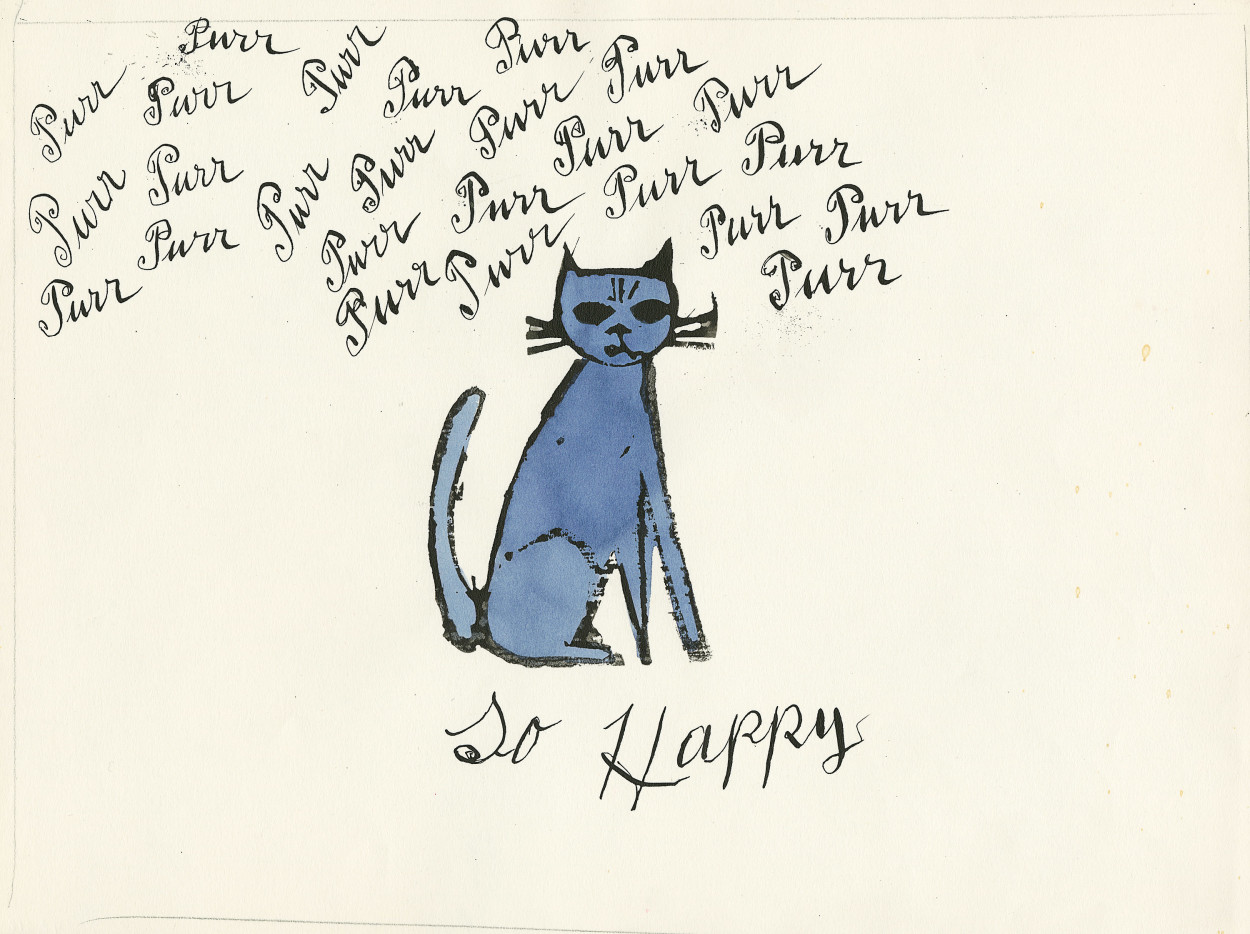 Purr Purr Purr
Purr Purr Purr Purr
Purr Purr Purr
Purr Purr Purr Purr Purr
Purr Purr Purr Purr
Purr Purr
Purr Purr Purr Purr
So Happy